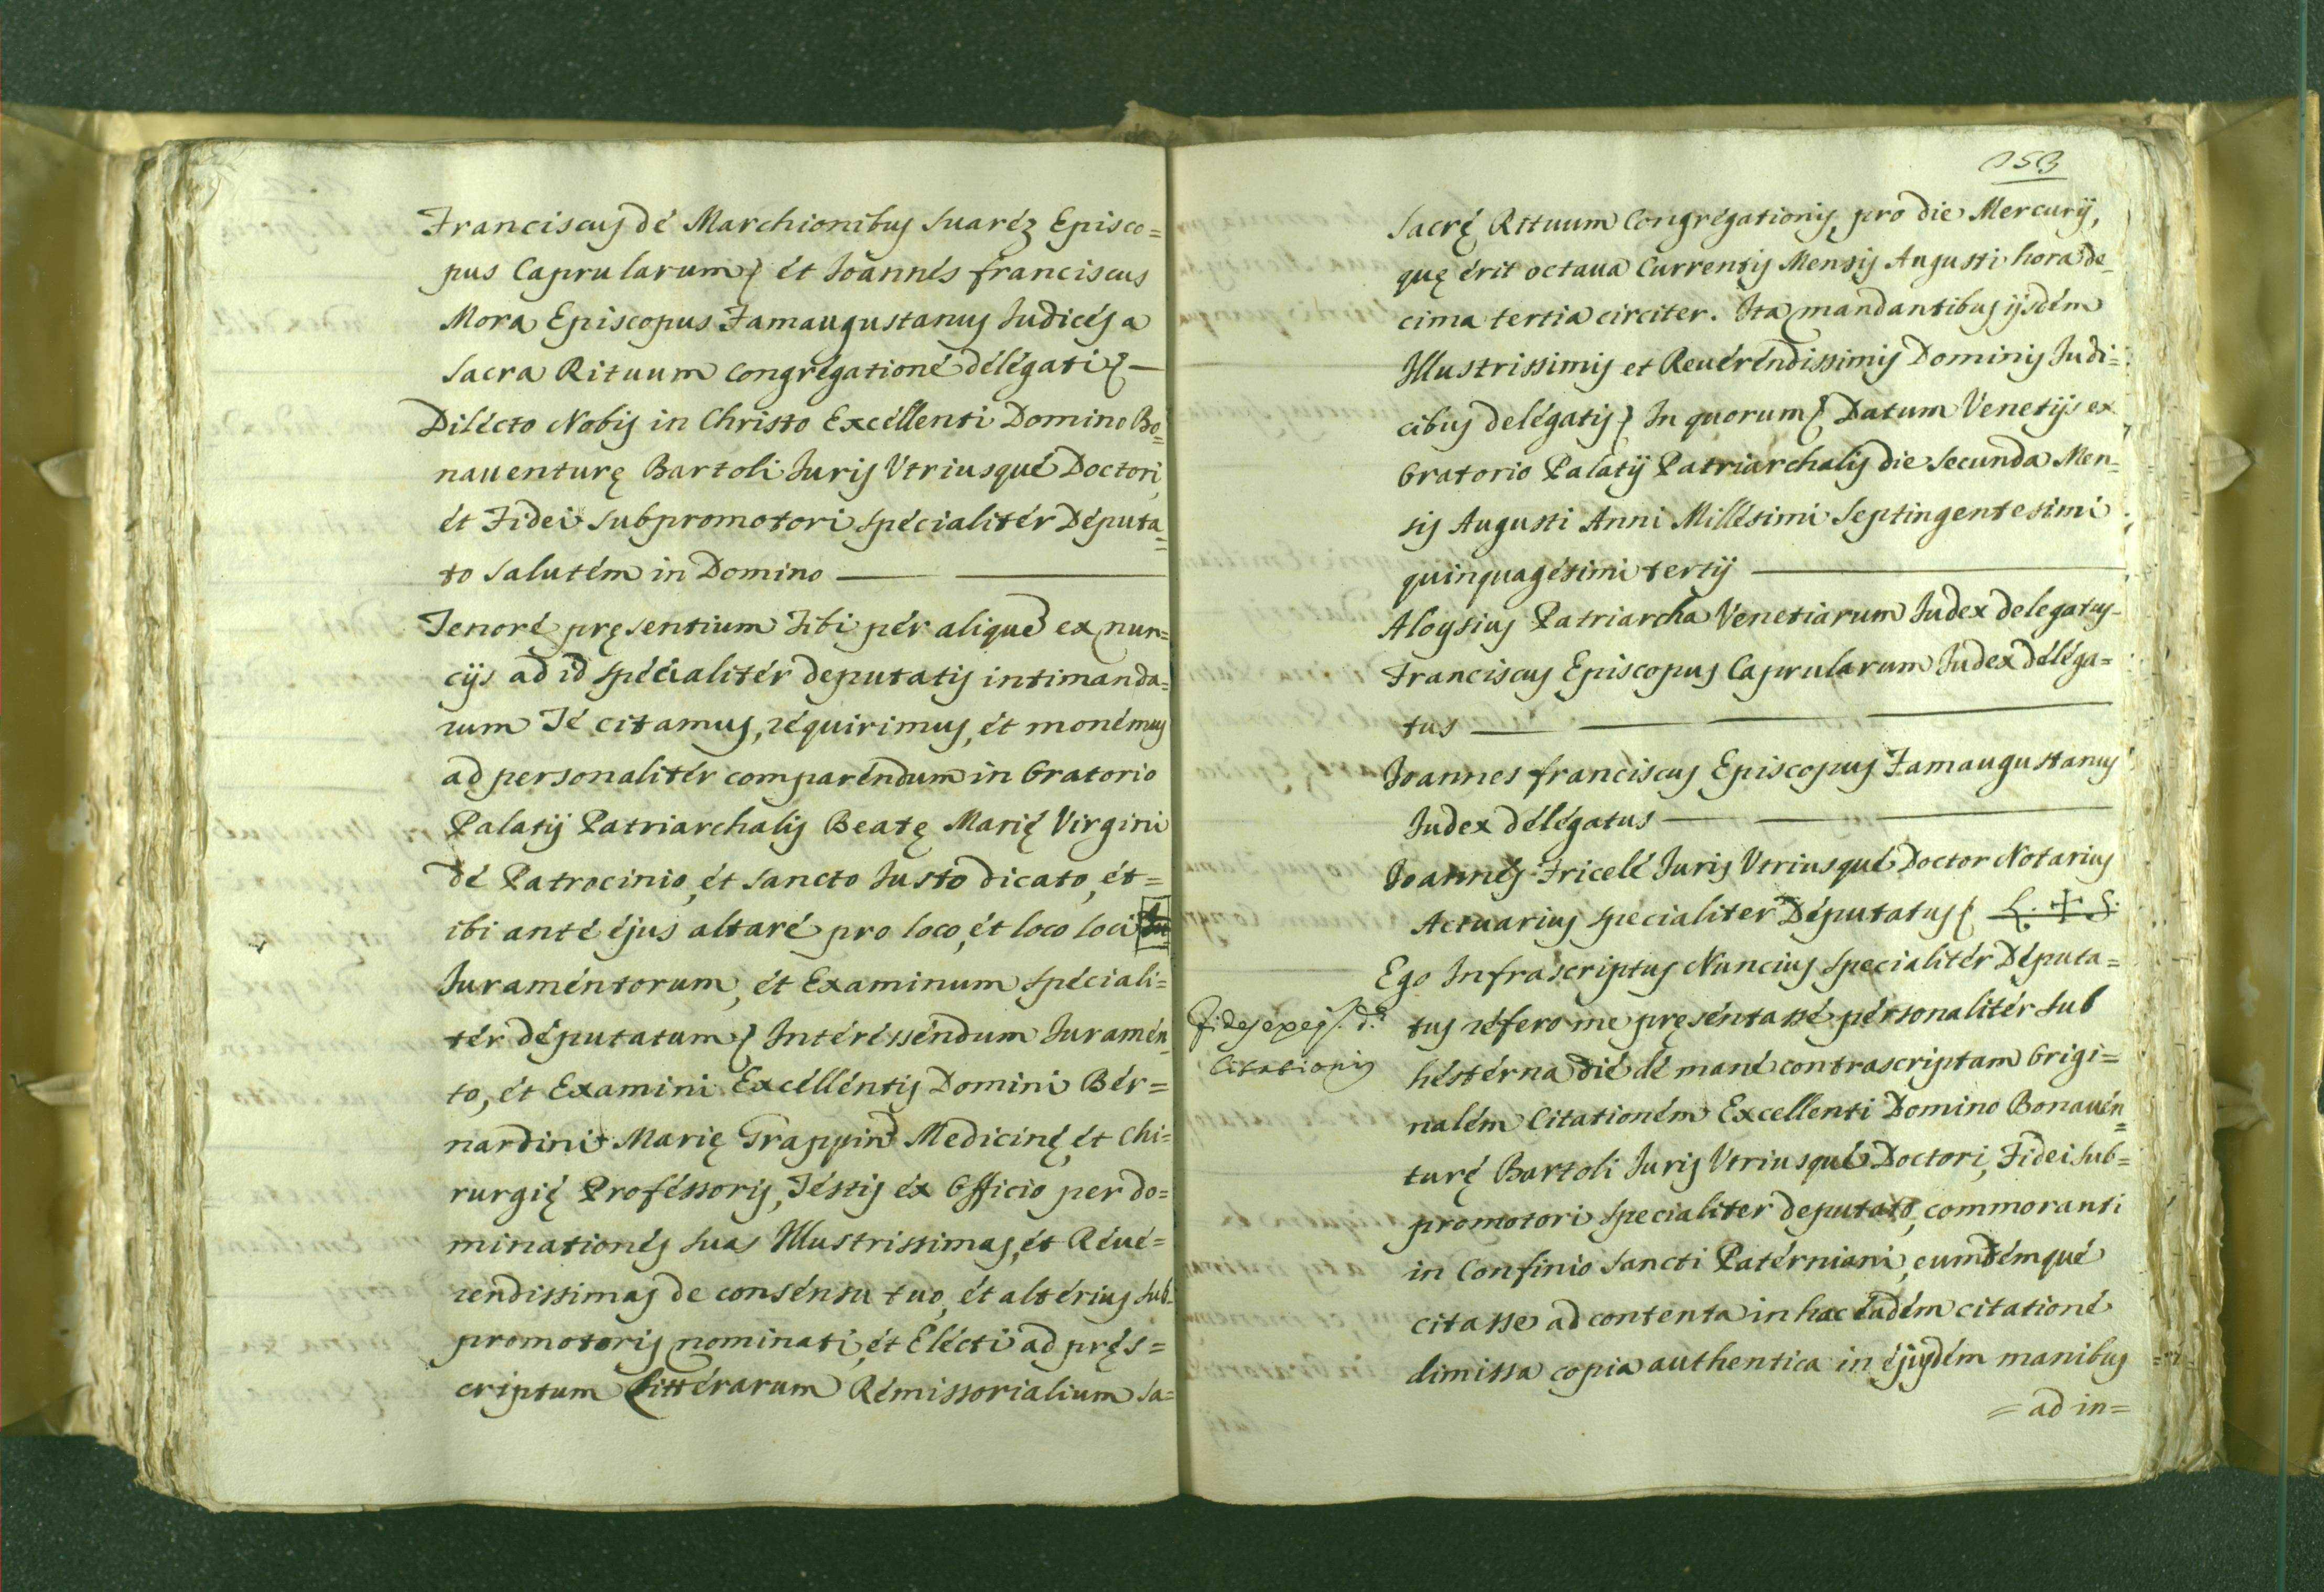 Franciscus dé Marchionibus Suaréz Episco=
pus Caprularum et Joannés franciscus
Mora Episcopus Famaugustanus Judicés a
Sacra Rituum congrégationé délégati —
Diłécto Nobis in Christo Excéllenti Domino Bo=
nauenturę Bartoli Juris Vtriusqué Doctori,
ét Fidei Subpromotori spécialitér Députa=
to salutém in Domino —
Tenoré pręsentium Tibi pér alique ex nun=
cijs ad id spécialitér deputatis intimanda=
rum Té citamus, réquirimus, ét monémus
ad personalitér comparéndum in Oratorio
Palatij Patriarchalis Beatę Marię Virgini
dé Patrocinio, ét Sancto Justo dicato, ét=
ibi anté éjus altaré pro loco, ét loco loci
Juraméntorum, ét Examinum spéciali=
tér députatum Intéréssendum Juramén=
to, ét Examini Excéllentis Domini Bér=
nardini Marię Trappin Medicinę, ét Chi=
rurgię Proféssoris, Téstis éx Officio per do=
minationés suas Illustrissimas, ét Réué=
rendissimas de consénsu tuo, ét altérius sub=
promotoris nominati, ét Elécti ad pręs=
criptum Littérarum Rémissorialium Sa=
153
Sacrę Rituum Congrégationis, pro die Mercurij,
quę érit octaua Currentis Mensis Augusti hora de=
cima tertia circiter. Ita mandantibus ijsdém
Illustrissimis et Reuéréndissimis Dominis Judi=
cibus delégatis In quorum Datum Venetijs ex
Oratorio Palatij Patriarchalis die secunda Men=
sis Augusti Anni Millésimi Septingentesimi
quinquagésimi tertij —
Aloysius Patriarcha Venetiarum Judex delegatus-
Franciscus Episcopus Caprularum Judex déléga=
tus —
Joannes franciscus Episcopus Famaugustanus
Judex délégatus —
Joannés Fricelé Juris Vtriusqué Doctor Notarius
Actuarius specialiter Députatus L. ✝ S.
Ego Infrascriptus Nuncius specialitér Députa=
tus réfero me pręséntassé pérsonalitér sub
hestérna dié dé mané contrascriptam Origi=
nalém Citationém Excellenti Domino Bonauén=
turę Bartoli Juris Vtriusqué Doctori, Fidei Sub=
promotori specialiter deputato, commoranti
in Confinio Sancti Patérniani, eumdémqué
citasse ad contenta in hac éadém citationé
dimissa copia authentica in éjusdém manibus
= ad in=
Citationis